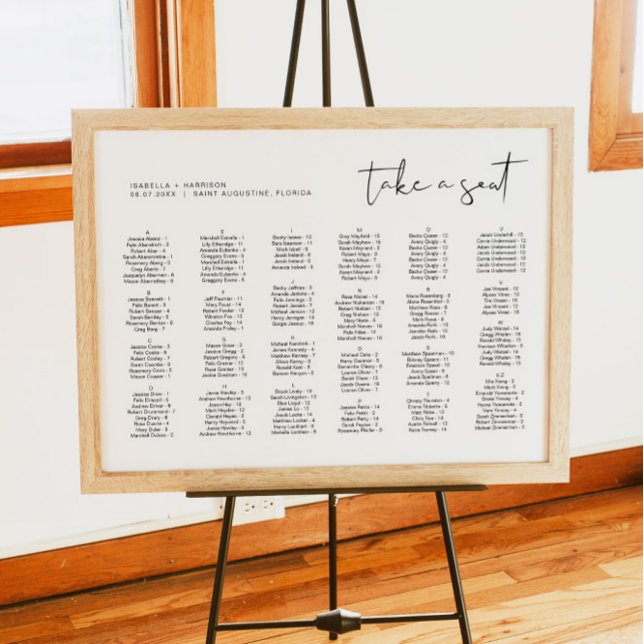 ISABELLA + HARRISON
06.07.20XX | SAINT AUGUSTINE, FLORIDA
take a seat
A
Jessica Abend - 3
Felix Abendroth - 3
Robert Aber - 4
Sarah Abercrombie - 1
Rosemary Aberg - 5
Greg Aberle - 7
Jacquelyn Aberman - 6
Mason Abernathey - 6
B
Jessica Bennett - 1
Felix Benoit - 3
Robert Benser - 4
Sarah Bentley - 3
Rosemary Bentos - 5
Greg Berg - 7
C
Jessica Cooke - 5
Felix Cooke - 5
Robert Cookie - 5
Sarah Coombs - 5
Rosemary Coon - 5
Mason Cooper - 1
D
Jessica Driven - 1
Felix Driscoll - 1
Andrew Driver - 6
Robert Drummond - 7
Greg Drury - 8
Rosa Duarte - 4
Mary Dube - 3
Marshall Dubois - 2
E
Marshall Estrella - 1
Lilly Etheridge - 1
Amanda Eubanks - 4
Greggory Evans - 3
Marshall Estrella - 1
Lilly Etheridge - 1
Amanda Eubanks - 4
Greggory Evans - 3
F
Jeff Fournier - 11
Mary Foust - 1
Robert Fowler - 12
Winston Fox - 12
Charles Foy - 14
Amanda Fraley - 1
G
Mason Greer - 2
Jessica Gregg - 2
Robert Gregory - 5
Felix Greiner - 12
Rose Grenier - 15
Jackie Gresham - 16
H
Jamie Hawley - 3
Andrew Hawthorne - 13
Jason Hay - 1
Mark Hayden - 12
Donald Hayes - 3
Harry Hayward - 5
Jamie Hawley - 3
Andrew Hawthorne - 13
I
Becky Isaacs - 12
Sara Isaacson - 11
Mark Isbell - 9
Jacob Ireland - 6
Jacob Ireland - 6
Amanda Ireland - 3
J
Becky Jeffries - 3
Amanda Jenkins - 4
Felix Jennings - 3
Robert Jensen - 11
Michael Jenson - 12
Harry Jernigan - 13
Gorgia Jessup - 16
K
Michael Kendrick - 12
James Kennedy - 4
Matthew Kenney - 7
Allison Kenny - 8
Ronald Kent - 5
Benson Kenyon - 5
L
Brook Lively - 10
Sarah Livingston - 12
Rico Lloyd - 12
James Lo - 12
Jacob Locke - 14
Matthew Locket - 4
Harry Lockhart - 5
Michelle Locklear - 9
M
Greg Mayfield - 10
Sarah Mayhew - 10
Karen Maynard - 2
Robert Mayo - 9
Harry Mays - 11
Sarah Mayhew - 10
Karen Maynard - 2
Robert Mayo - 9
N
Rose Nickel - 14
Andrew Nickerson - 12
Robert Nielsen - 13
Greg Nielson - 13
Mary Nieto - 8
Marshall Nieves - 16
Felix Niles - 14
Marshall Nieves - 16
O
Michael Oaks - 2
Harry Oconnor - 5
Samantha Cleary - 6
Lauren Olson - 12
Sarah Olsen - 13
Jacob Owens - 16
Lauren Olson - 12
P
Jessica Pettis - 14
Felix Pettit - 2
Robert Petty - 2
Sarah Payton - 2
Rosemary Pfeifer - 9
Q
Becka Queen - 12
Avery Quigly - 4
Avery Quigly - 4
Becka Queen - 12
Avery Quigly - 4
Becka Queen - 12
Becka Queen - 12
Avery Quigly - 4
R
Maria Rosenberg - 8
Alana Rosenthal - 3
Matthew Ross - 7
Gregg Rossi - 9
Rose Rossi - 4
Amanda Roth - 14
Amanda Roth - 14
Jacob Roth - 14
S
Matthew Spearman - 10
Britney Spears - 11
Boston Spence - 5
Avery Speer - 6
Jacob Spellman - 4
Amanda Sperry - 12
T
Christy Thornton - 4
Emma Tibbetts - 12
Matt Tibbs - 12
Chris Tice - 13
Austin Tidwell - 13
Katie Tierney - 14
U
Jacob Underhill - 13
Carrie Underwood - 12
Jacob Underwood - 12
Carrie Underwood - 12
Carrie Underwood - 12
Jacob Underwood - 12
Carrie Underwood - 12
V
Joe Vincent - 12
Alyssa Vines - 12
Tina Vinson - 11
Joe Vincent - 12
Alyssa Vines - 12
Joe Vincent - 12
W
Judy Wetzel - 14
Gregg Whalen - 15
Ronald Whaley - 15
Harrison Wharton - 16
Judy Wetzel - 14
Gregg Whalen - 15
Ronald Whaley - 15
X-Z
Mia Xiong - 2
Mark Yang - 2
Emerald Yamamoto - 2
Drake Yancey - 4
Emerald Yamamoto - 2
Yumi Yancey - 4
Mark Yang - 2
Sarah Zimmer - 2
Robert Zimmerman - 2
Michael Zimmerman - 3